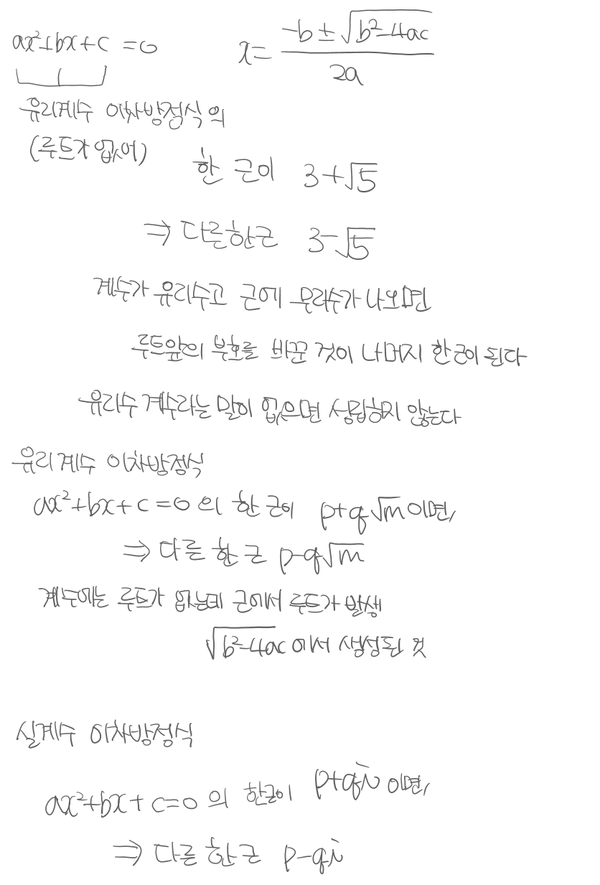 ax²+bx+c=0 x= (-b±√(b²-4ac))/(2a)
유리계수 이차방정식의
(루트가 없어)
한 근이 3+√5
⇒ 다른한근 3-√5
계수가 유리수고 근에 무리수가 나오면
루트앞의 부호를 바꾼 것이 나머지 한근이 된다
유리수 계수라는 말이 없으면 성립하지 않는다
유리계수 이차방정식
ax²+bx+c=0의 한 근이 p+q√m이면,
⇒ 다른 한 근 p-q√m
계수에는 루트가 없는데 근에서 루트가 발생
√(b²-4ac)에서 생성된 것
실계수 이차방정식
ax²+bx+c=0의 한근이 p+qi이면,
⇒ 다른 한근 p-qi